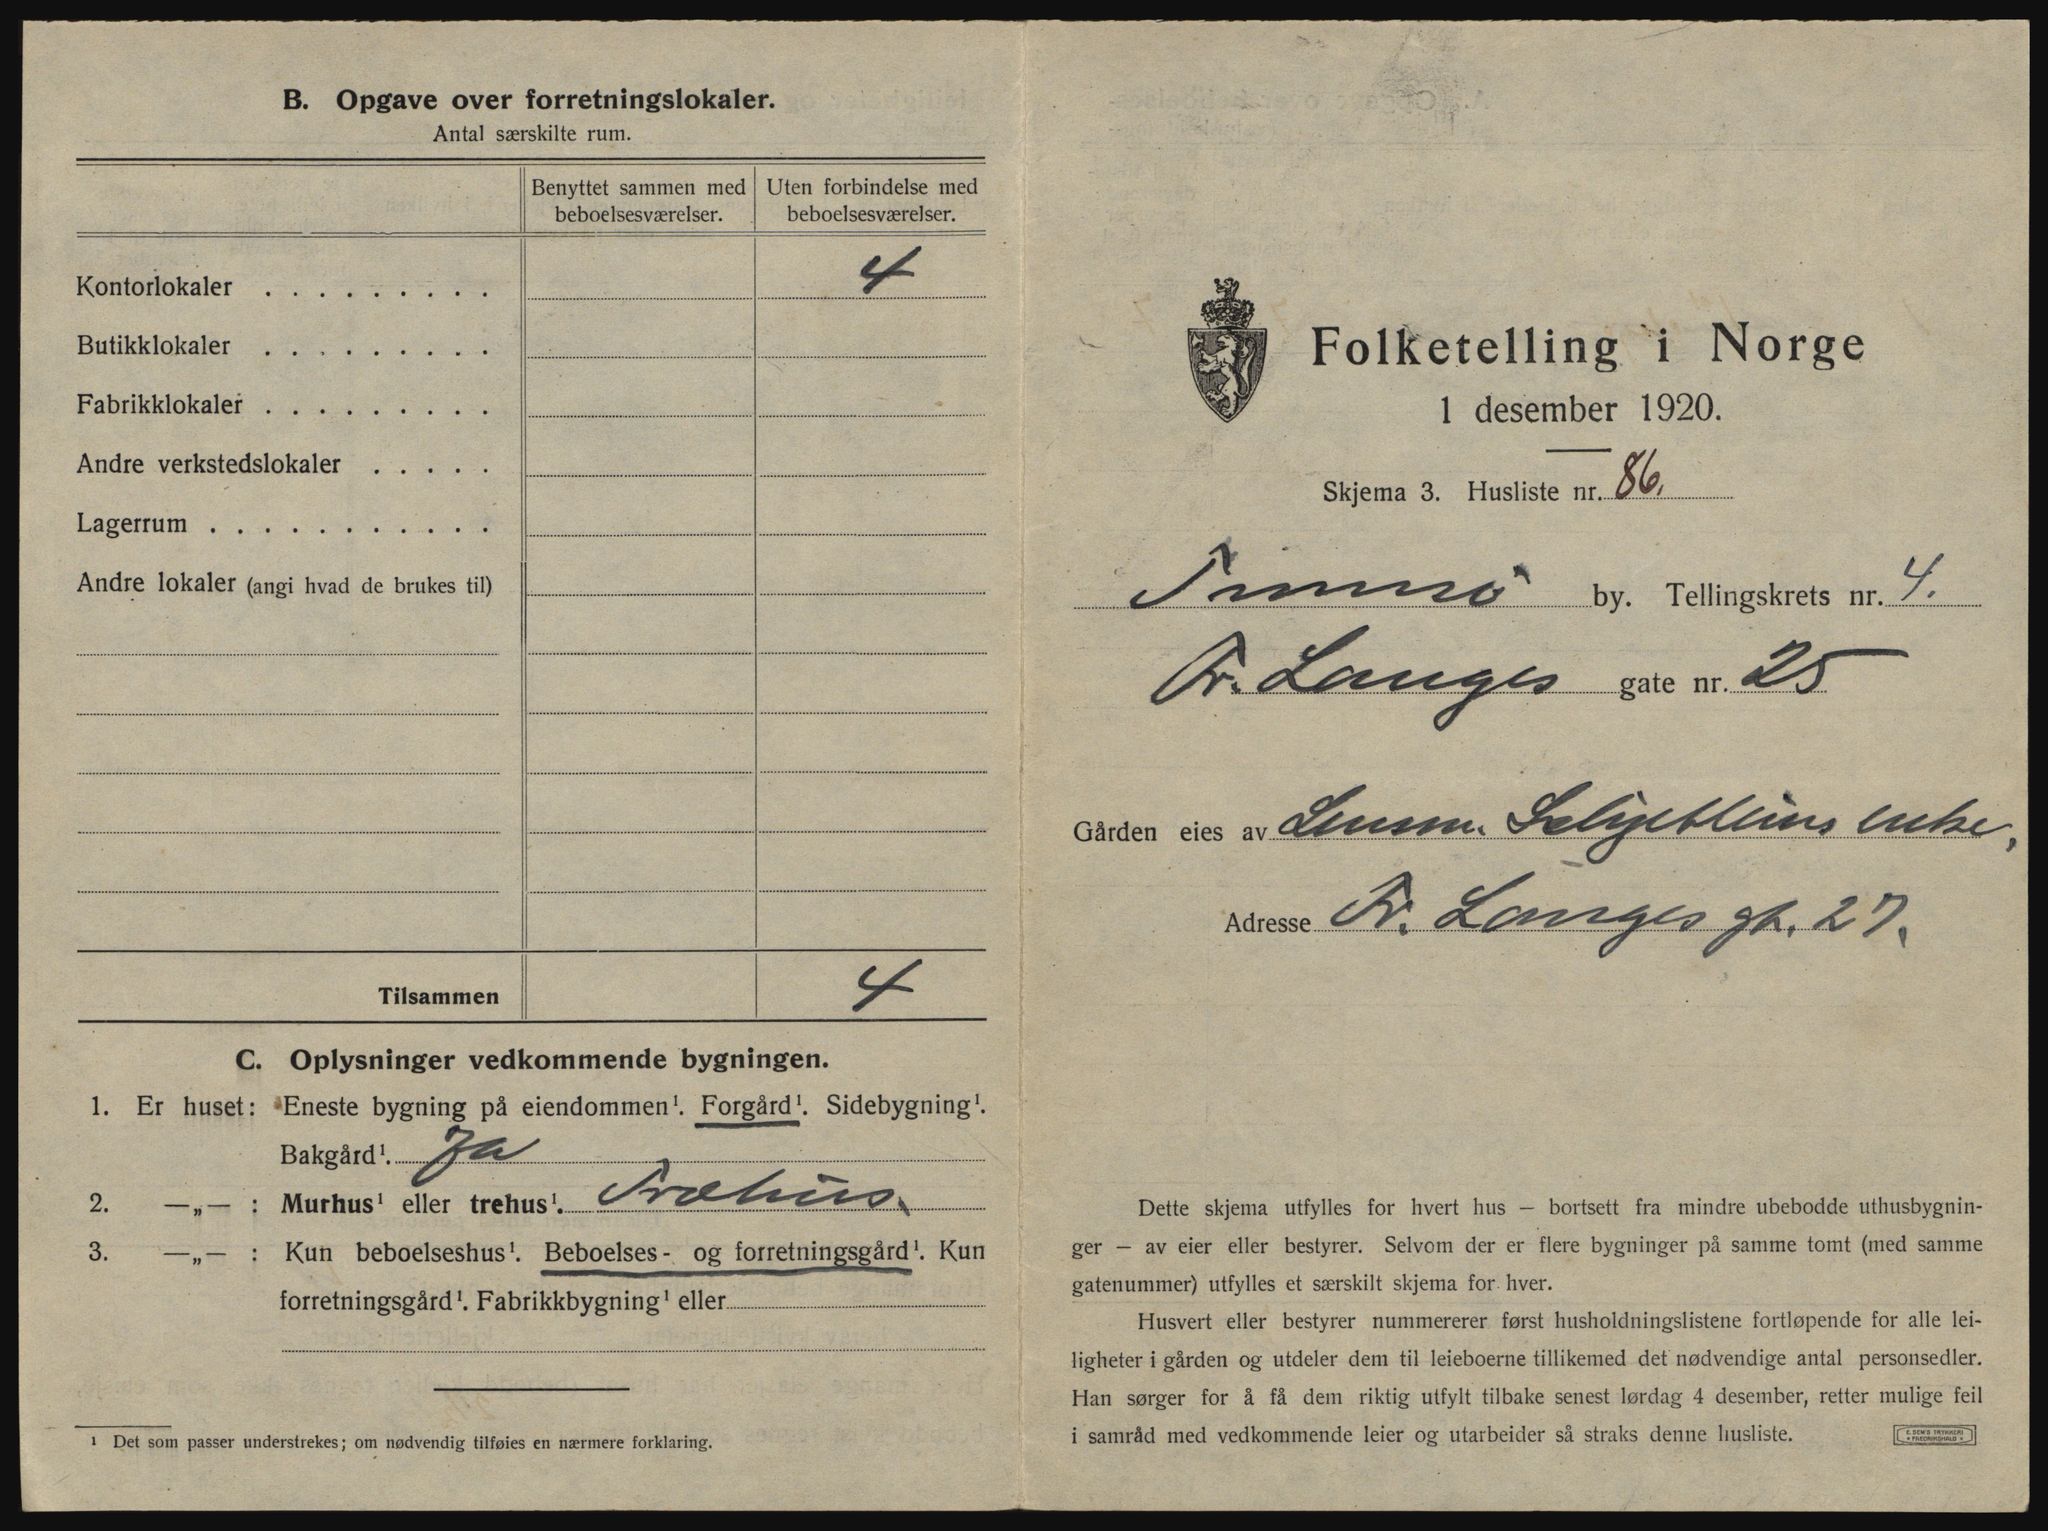 B. Opgave over forretningslokaler.
Antal særskilte rum.
Benyttet sammen med beboelsesværelser.
Uten forbindelse med beboelsesværelser.
Kontorlokaler . . . . . . . . . 4
Butikklokaler . . . . . . . . .
Fabrikklokaler . . . . . . . . .
Andre verkstedslokaler . . . . .
Lagerrum . . . . . . . . . . . .
Andre lokaler (angi hvad de brukes til)
Tilsammen 4
C. Oplysninger vedkommende bygningen.
1. Er huset: Eneste bygning på eiendommen¹. Forgård¹. Sidebygning¹.
Bakgård¹. Ja
2. —„— : Murhus¹ eller trehus¹. Træhus.
3. —„— : Kun beboelseshus¹. Beboelses- og forretningsgård¹. Kun
forretningsgård¹. Fabrikkbygning¹ eller
¹ Det som passer understrekes; om nødvendig tilføies en nærmere forklaring.
Folketelling i Norge
1 desember 1920.
Skjema 3. Husliste nr. 86.
Tromsø by. Tellingskrets nr. 4.
Fr. Langes gate nr. 25
Gården eies av enke,
Adresse Fr. Langes gt. 27.
Dette skjema utfylles for hvert hus — bortsett fra mindre ubebodde uthusbygnin-
ger — av eier eller bestyrer. Selvom der er flere bygninger på samme tomt (med samme
gatenummer) utfylles et særskilt skjema for hver.
Husvert eller bestyrer nummererer først husholdningslistene fortløpende for alle lei-
ligheter i gården og utdeler dem til leieboerne tillikemed det nødvendige antal personsedler.
Han sørger for å få dem riktig utfylt tilbake senest lørdag 4 desember, retter mulige feil
i samråd med vedkommende leier og utarbeider så straks denne husliste.
E. SEM'S TRYKKERI
FREDRIKSHALD